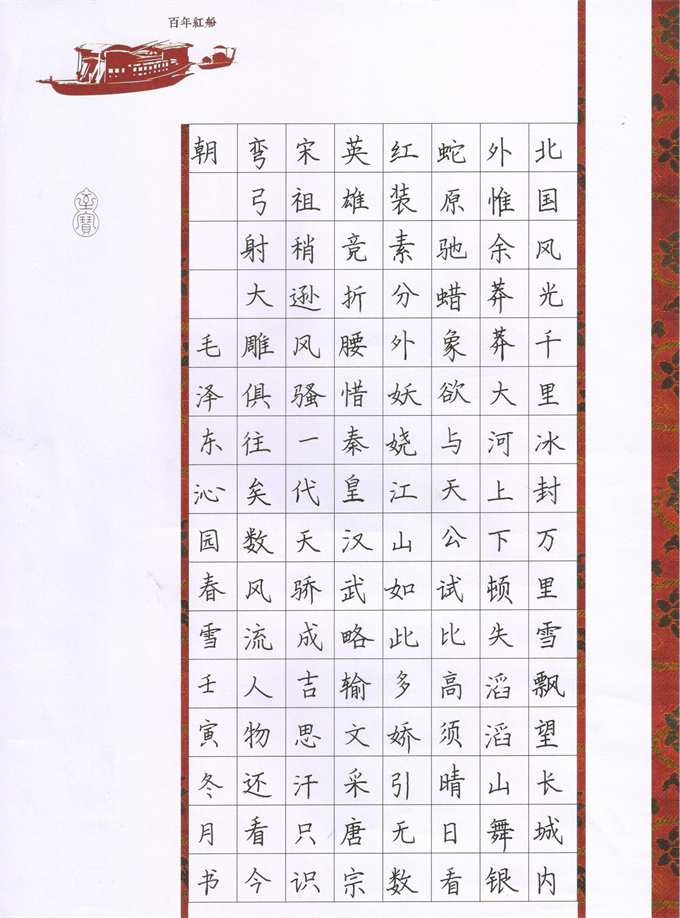 百年紅船
北国风光千里冰封万里雪飘望长城内
外惟余莽莽大河上下顿失滔滔山舞银
蛇原驰蜡象欲与天公试比高须晴日看
红装素分外妖娆江山如此多娇引无数
英雄竞折腰惜秦皇汉武略输文采唐宗
宋祖稍逊风骚一代天骄成吉思汗只识
弯弓射大雕俱往矣数风流人物还看今
朝 毛泽东沁园春雪壬寅冬月书